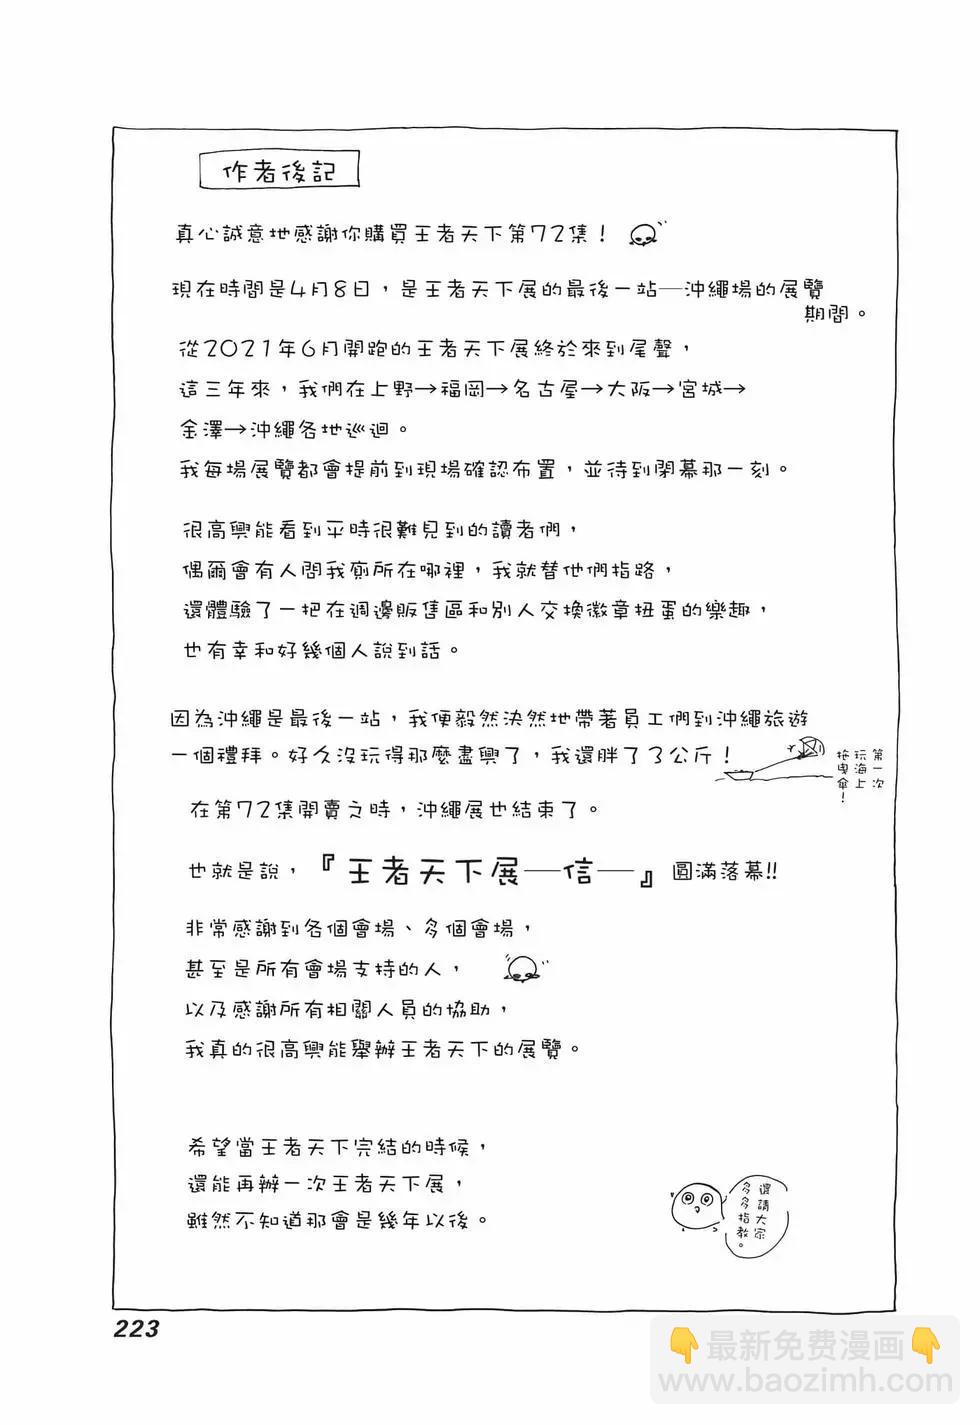 作者後記
真心誠意地感謝你購買王者天下第72集！
現在時間是4月8日，是王者天下展的最後一站─沖繩場的展覽
期間。
從2021年6月開跑的王者天下展終於來到尾聲，
這三年來，我們在上野→福岡→名古屋→大阪→宮城→
金澤→沖繩各地巡迴。
我每場展覽都會提前到現場確認布置，並待到閉幕那一刻。
很高興能看到平時很難見到的讀者們，
偶爾會有人問我廁所在哪裡，我就替他們指路，
還體驗了一把在週邊販售區和別人交換徽章扭蛋的樂趣，
也有幸和好幾個人說到話。
因為沖繩是最後一站，我便毅然決然地帶著員工們到沖繩旅遊
一個禮拜。好久沒玩得那麼盡興了，我還胖了3公斤！
第一次
玩海上
拖曳傘！
在第72集開賣之時，沖繩展也結束了。
也就是說，『王者天下展─信─』圓滿落幕!!
非常感謝到各個會場、多個會場，
甚至是所有會場支持的人，
以及感謝所有相關人員的協助，
我真的很高興能舉辦王者天下的展覽。
希望當王者天下完結的時候，
還能再辦一次王者天下展，
雖然不知道那會是幾年以後。
還請大家
多多指教。
223
👇最新免费漫画👇
www.baozimh.com